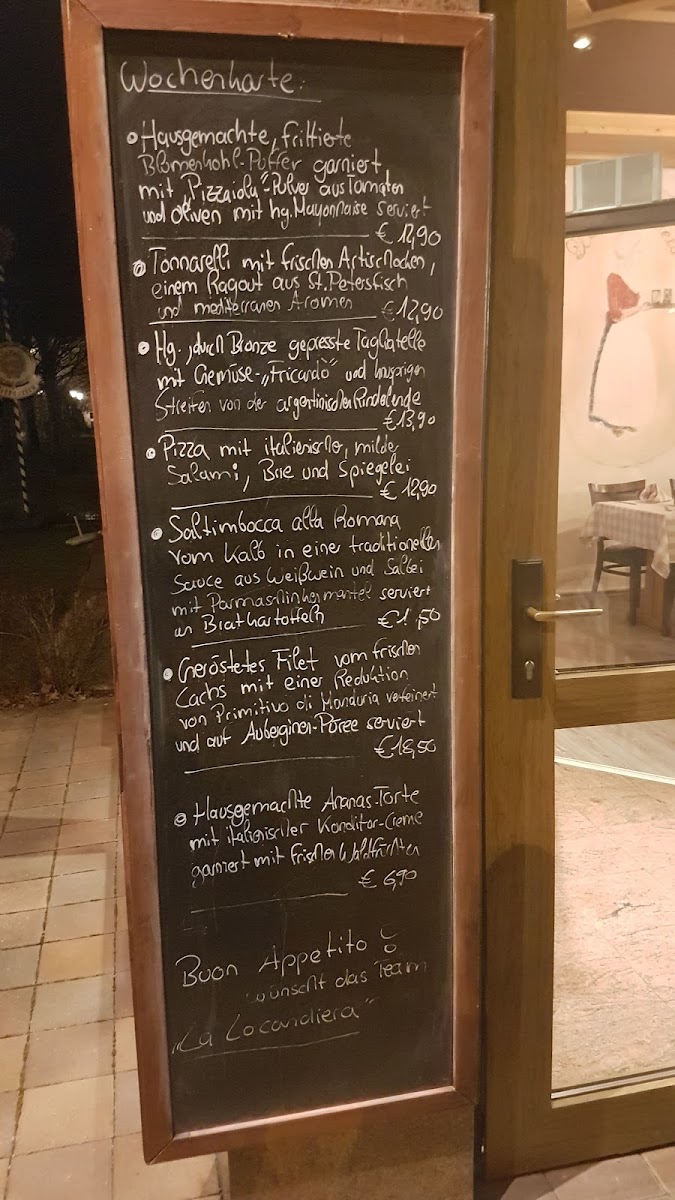 Wochenkarte:
Hausgemachte, frittierte
Blumenkohl-Puffer garniert
mit "Pizzaiola"-Pulver aus Tomaten
und Oliven mit hg. Mayonnaise serviert
€ 12,90
Tonnarelli mit frischen Artischocken,
einem Ragout aus St. Petersfisch
und mediterranen Aromen €12,90
Hg., durch Bronze gepresste Tagliatelle
mit Gemüse-"Fricandò" und knusprigen
Streifen von der argentinischen Rinderlende
€13,90
Pizza mit italienischer, milder
Salami, Brie und Spiegelei
€ 12,90
Saltimbocca alla Romana
vom Kalb in einer traditionellen
Sauce aus Weißwein und Salbei
mit Parmaschinkenmantel serviert
an Bratkartoffeln
Geröstetes Filet vom frischen
Lachs mit einer Reduktion
von Primitivo di Manduria verfeinert
und auf Auberginen-Püree serviert
€18,50
Hausgemachte Ananas-Torte
mit italienischer Konditor-Creme
garniert mit frischen Waldfrüchten
€ 6,90
Buon Appetito
wünscht das Team
"La Locandiera"